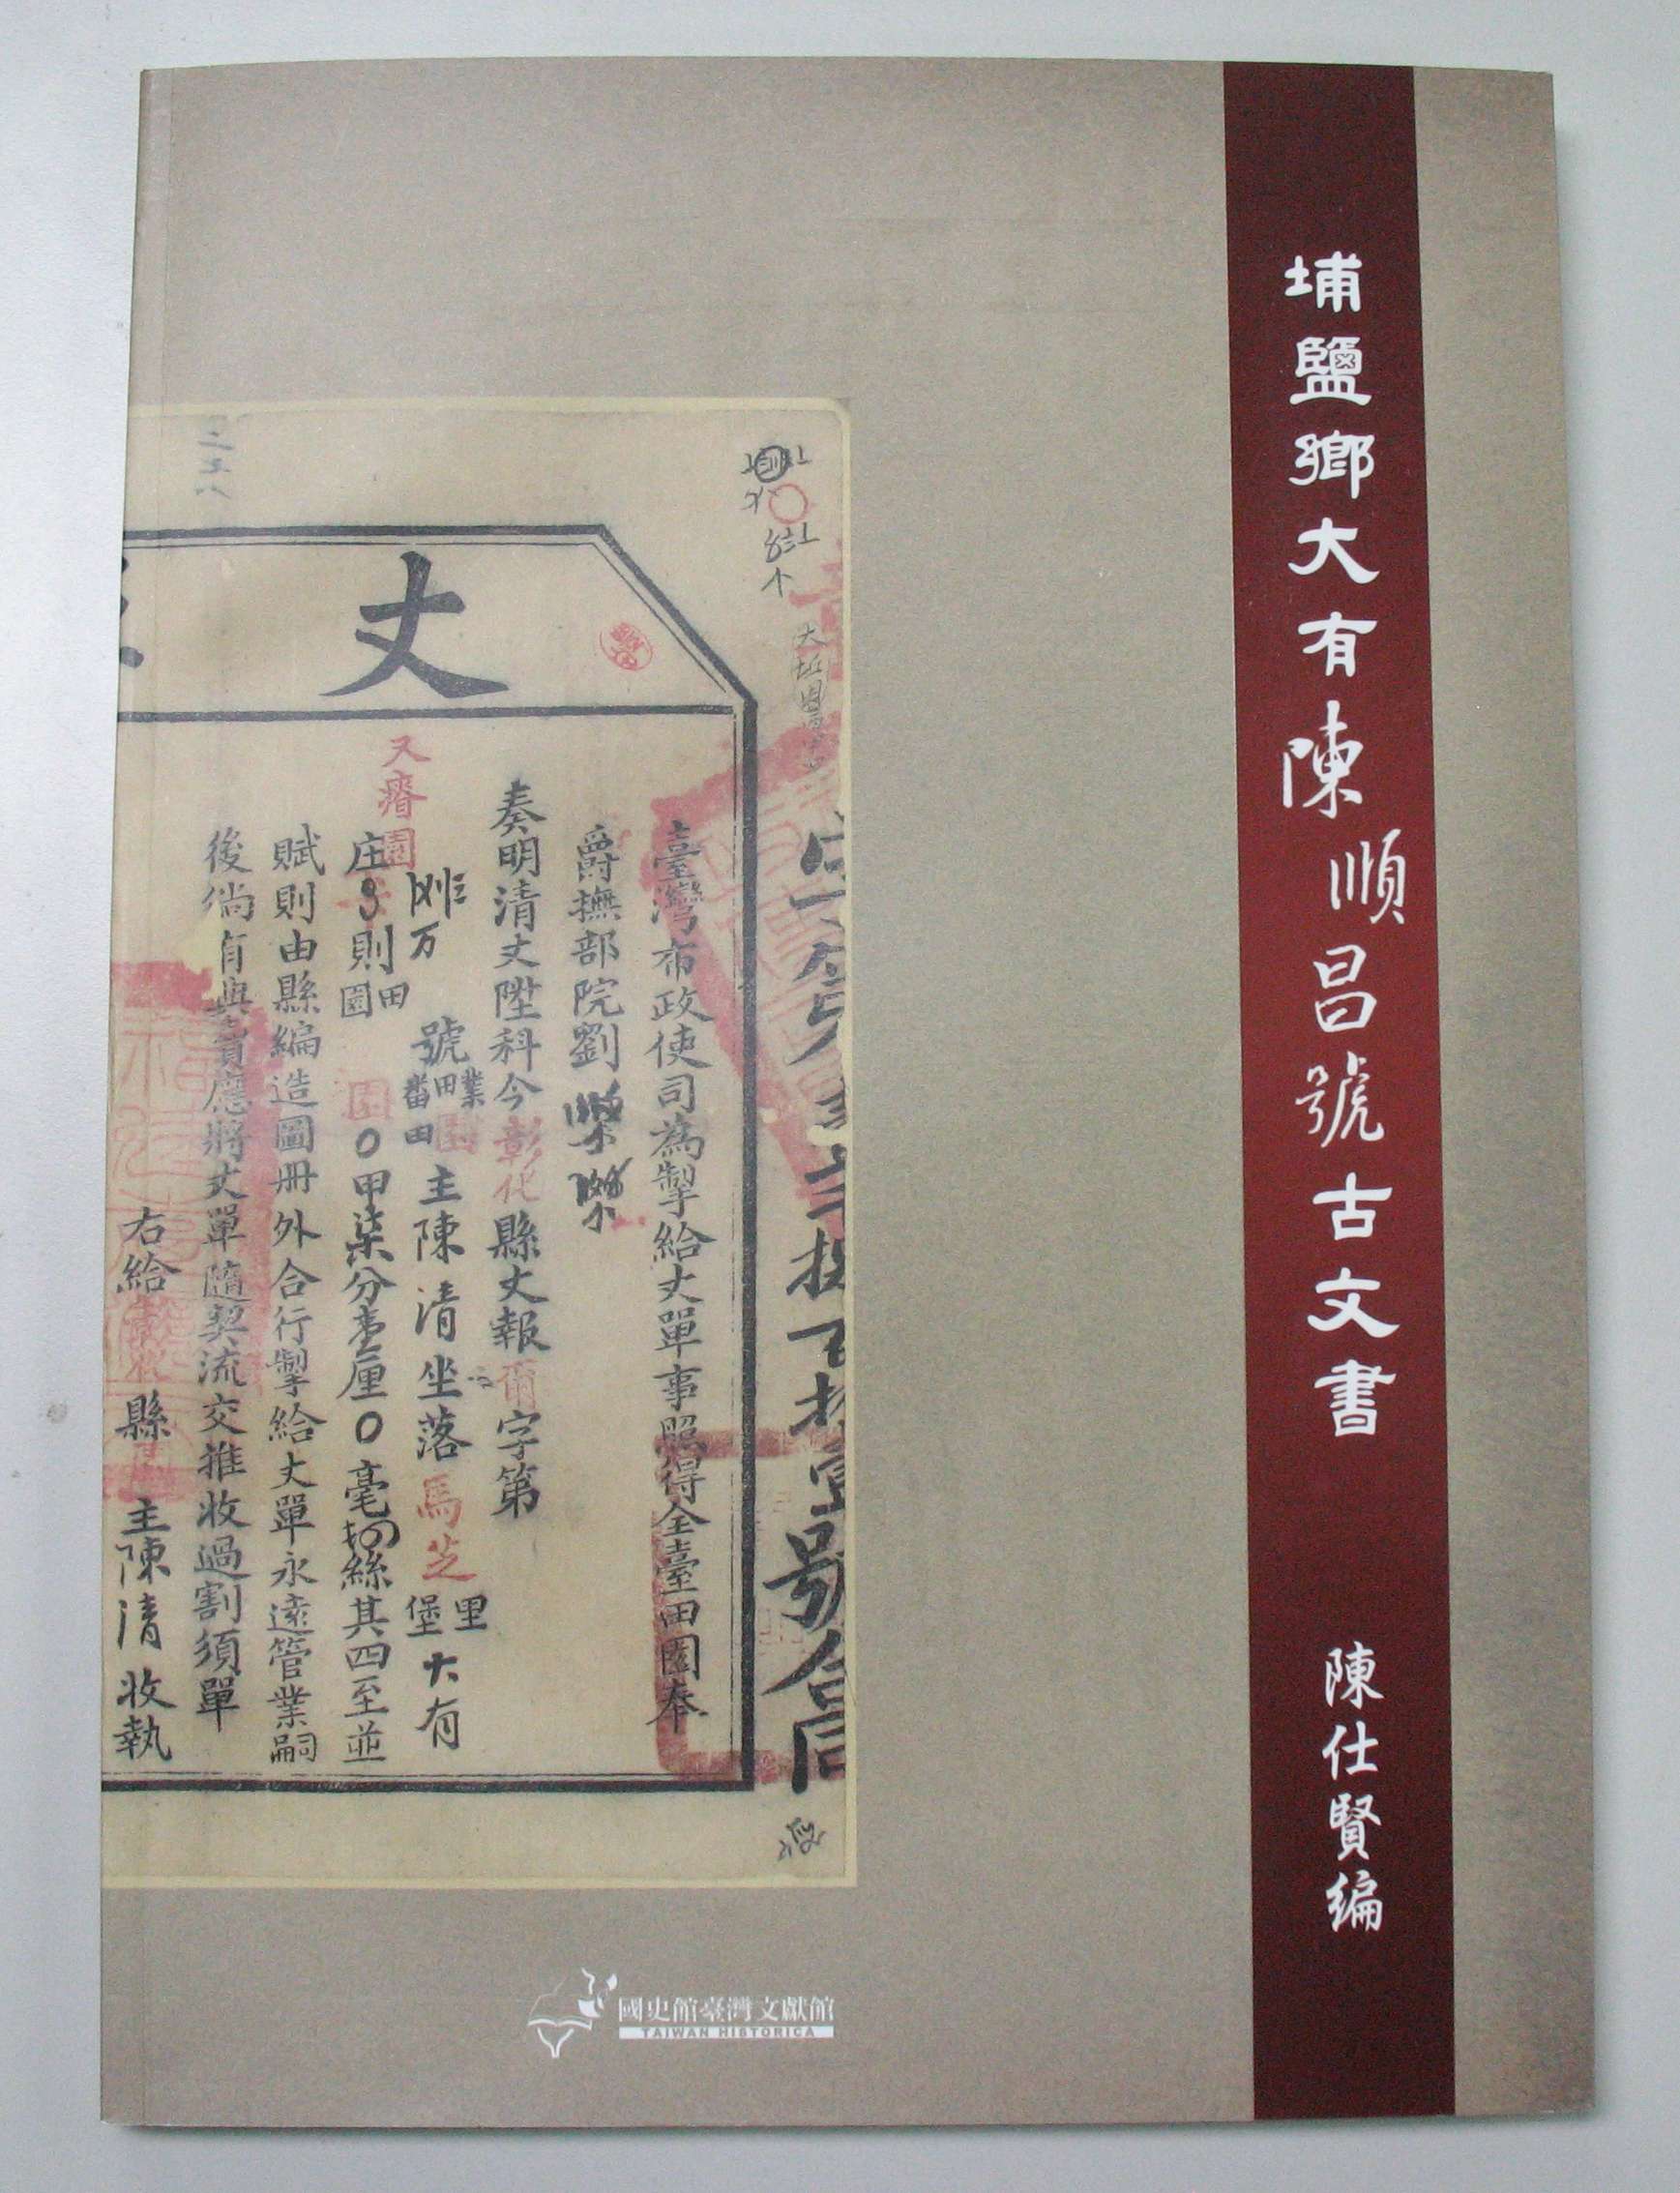 埔鹽鄉大有陳順昌號古文書
陳仕賢編
丈
臺灣布政使司為掣給丈單事照得全臺田園奉
爵撫部院劉
奏明清丈陞科今彰化縣丈報爾字第
號
業
田
園
番田
主陳清坐落馬芝
里
堡
大有
庄
則
田
園
0甲柒分壹厘0毫
絲其四至並
又瘠園
賦則由縣編造圖冊外合行掣給丈單永遠管業嗣
後倘有典賣應將丈單隨契流交推收過割須單
右給彰化縣
主陳清收執
國史館臺灣文獻館
TAIWAN HISTORICA